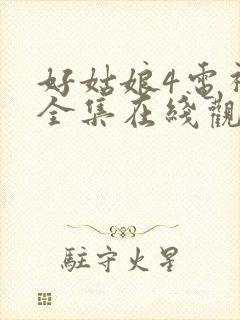 好姑娘4電視
全集在綫觀
駐守火星